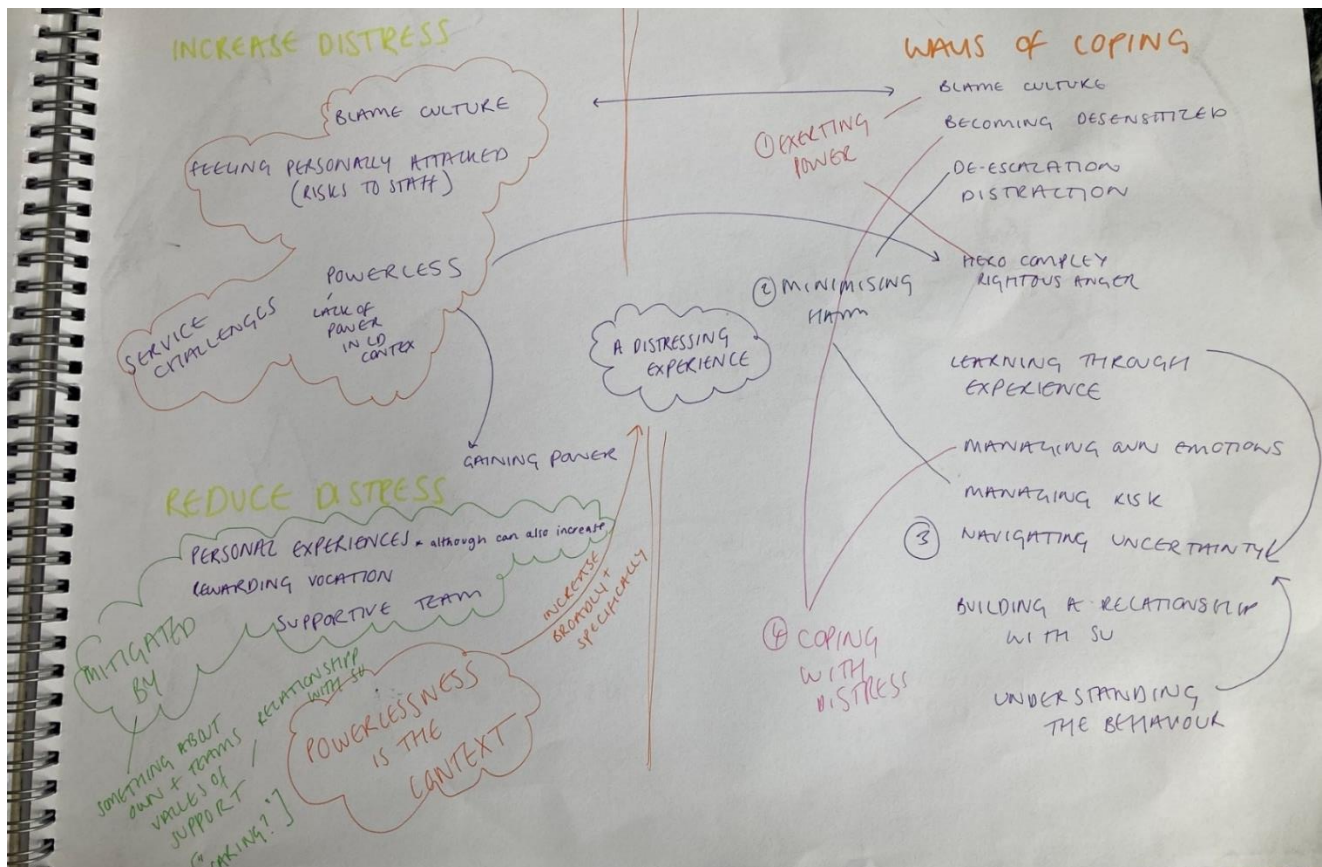 INCREASE DISTRESS
BLAME CULTURE
FEELING PERSONALLY ATTACKED
(RISKS TO STAFF)
POWERLESS
LACK OF
POWER
IN LD
CONTEX
SERVICE
CHALLENGES
GAINING POWER
REDUCE DISTRESS
PERSONAL EXPERIENCES * although can also increase
REWARDING VOCATION
SUPPORTIVE TEAM
MITIGATED
BY
SOMETHING ABOUT
OWN + TEAMS
VALUES OF
SUPPORT
RELATIONSHIPP
WITH SU
POWERLESSNESS
IS THE
CONTEXT
INCREASE
BROADLY +
SPECIFICALLY
A DISTRESSING
EXPERIENCE
WAYS OF COPING
BLAME CULTURE
BECOMING DESENSITIZED
① EXERTING
POWER
DE-ESCALATION
DISTRACTION
HERO COMPLEY
RIGHTOUS ANGER
② MINIMISING
HARM
LEARNING THROUGH
EXPERIENCE
MANAGING OWN EMOTIONS
MANAGING RISK
③ NAVIGATING UNCERTAINTY
BUILDING A RELATIONSHIP
WITH SU
④ COPING
WITH
DISTRESS
UNDERSTANDING
THE BEHAVIOUR